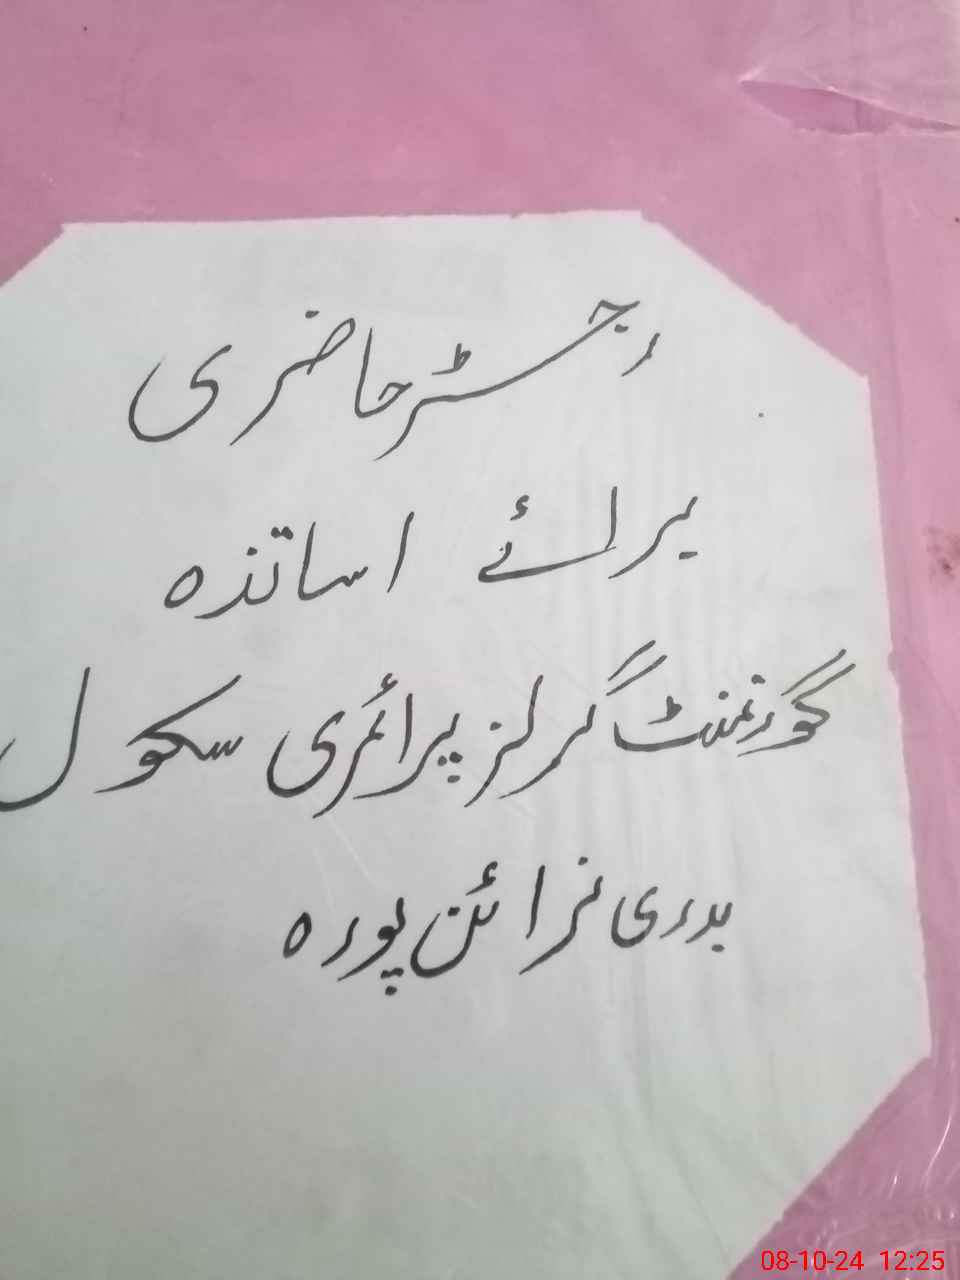 رجسٹر حاضری
برائے اساتذہ
گورنمنٹ گرلز پرائمری سکول
بدری نرائن پورہ
08-10-24 12:25